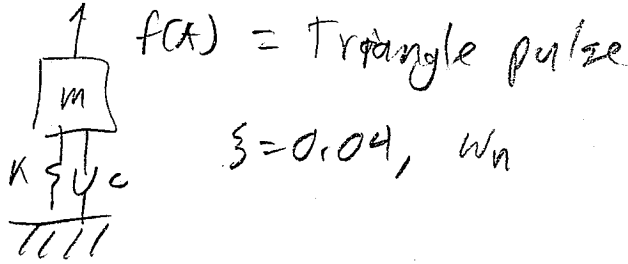 f(t) = Triangle pulse
m
ξ=0.04, ωn
K c